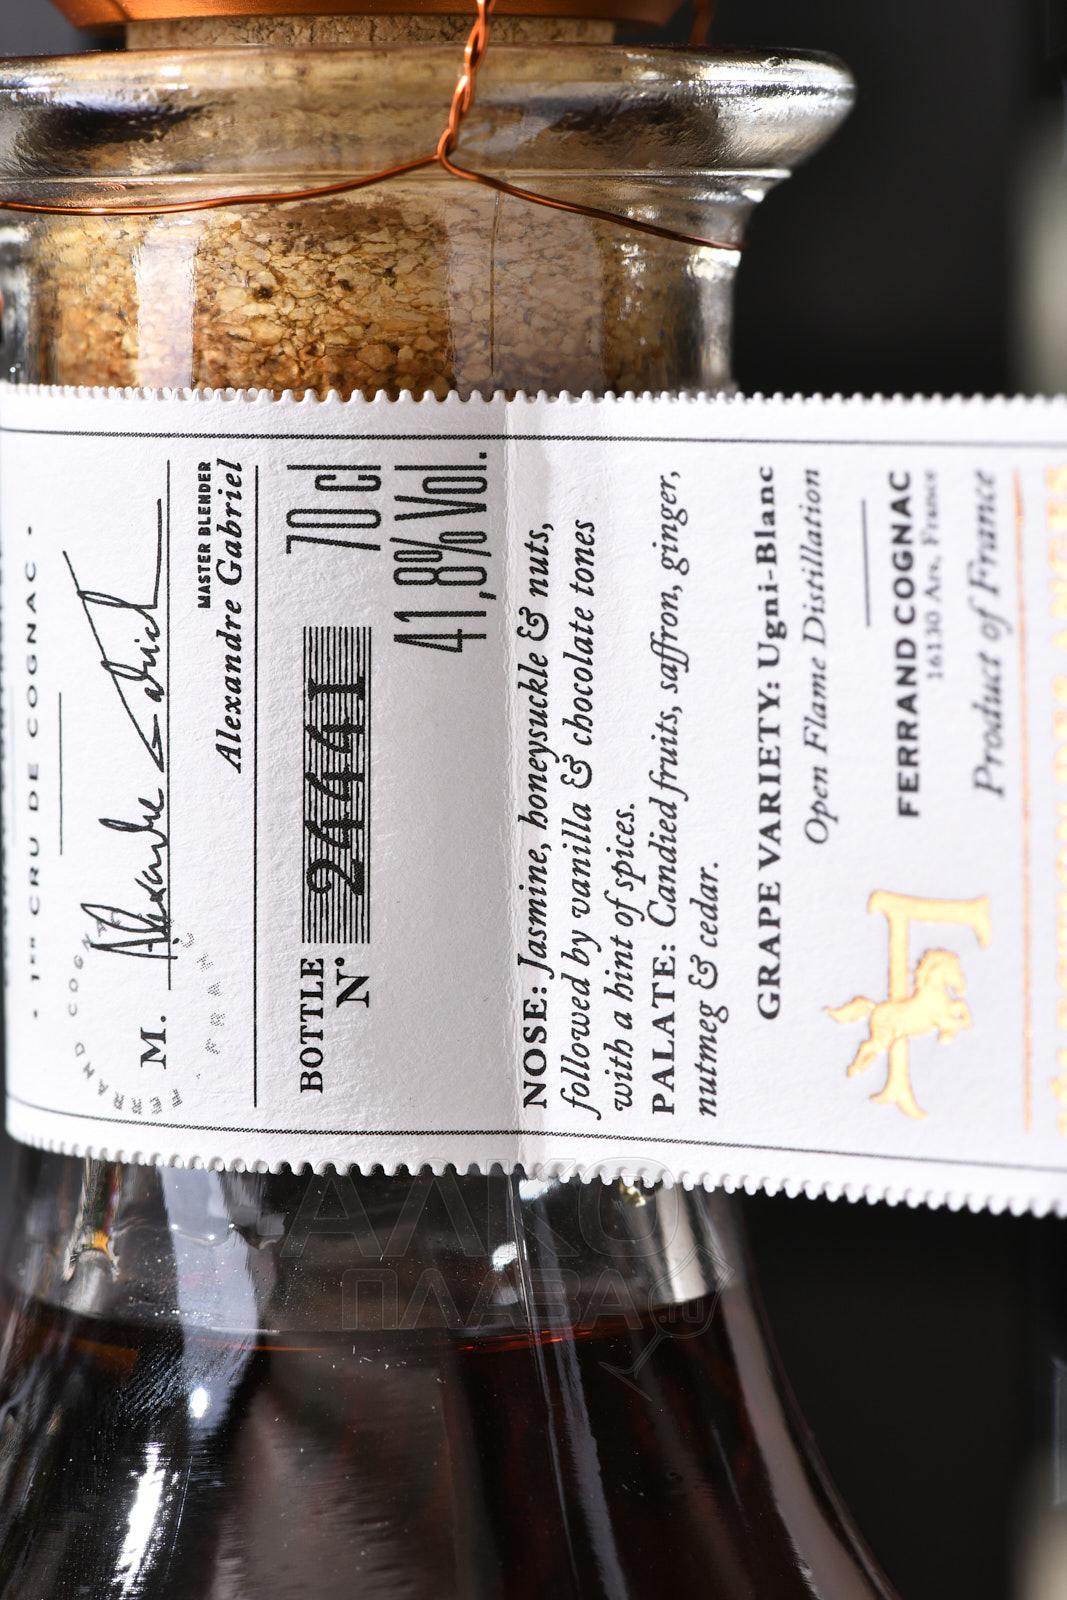 · 1ER CRU DE COGNAC ·
FERRAND COGNAC · FRANC
M. Alexandre Gabriel
MASTER BLENDER
Alexandre Gabriel
BOTTLE
N° 24441
70 cl
41,8% Vol.
NOSE: Jasmine, honeysuckle & nuts,
followed by vanilla & chocolate tones
with a hint of spices.
PALATE: Candied fruits, saffron, ginger,
nutmeg & cedar.
GRAPE VARIETY: Ugni-Blanc
Open Flame Distillation
FERRAND COGNAC
16130 Ars, France
Product of France
АЛКО
ПЛАВА.ru